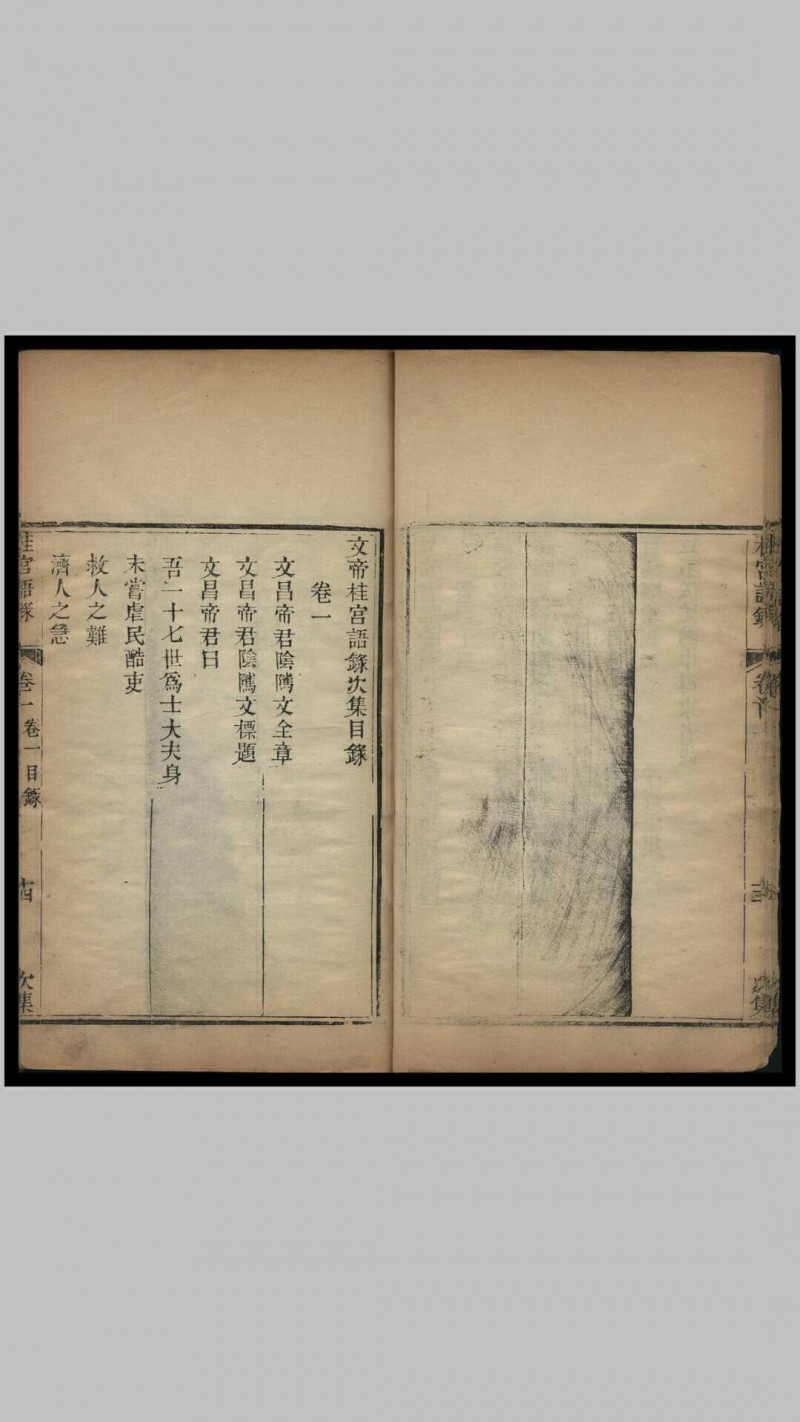 桂宫語錄 卷首 次集
文帝桂宫語錄次集目錄
卷一
文昌帝君陰隲文全章
文昌帝君陰隲文標題
文昌帝君曰
吾一十七世爲士大夫身
未嘗虐民酷吏
救人之難
濟人之急
桂宫語錄 卷一 卷一目錄 次集